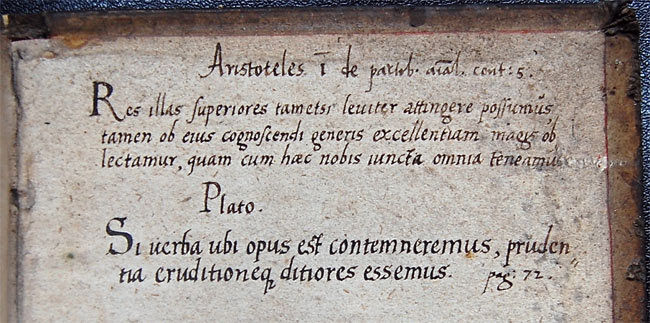 Aristoteles ī de partib. aīal. cont: 5.
Res illas superiores tametsi leuiter attingere possumus
tamen ob eius cognoscendi generis excellentiam magis ob
lectamur, quam cum hæc nobis iuncta omnia teneamus
Plato.
Si uerba ubi opus est contemneremus, pruden
tia eruditioneq; ditiores essemus. pag: 72.